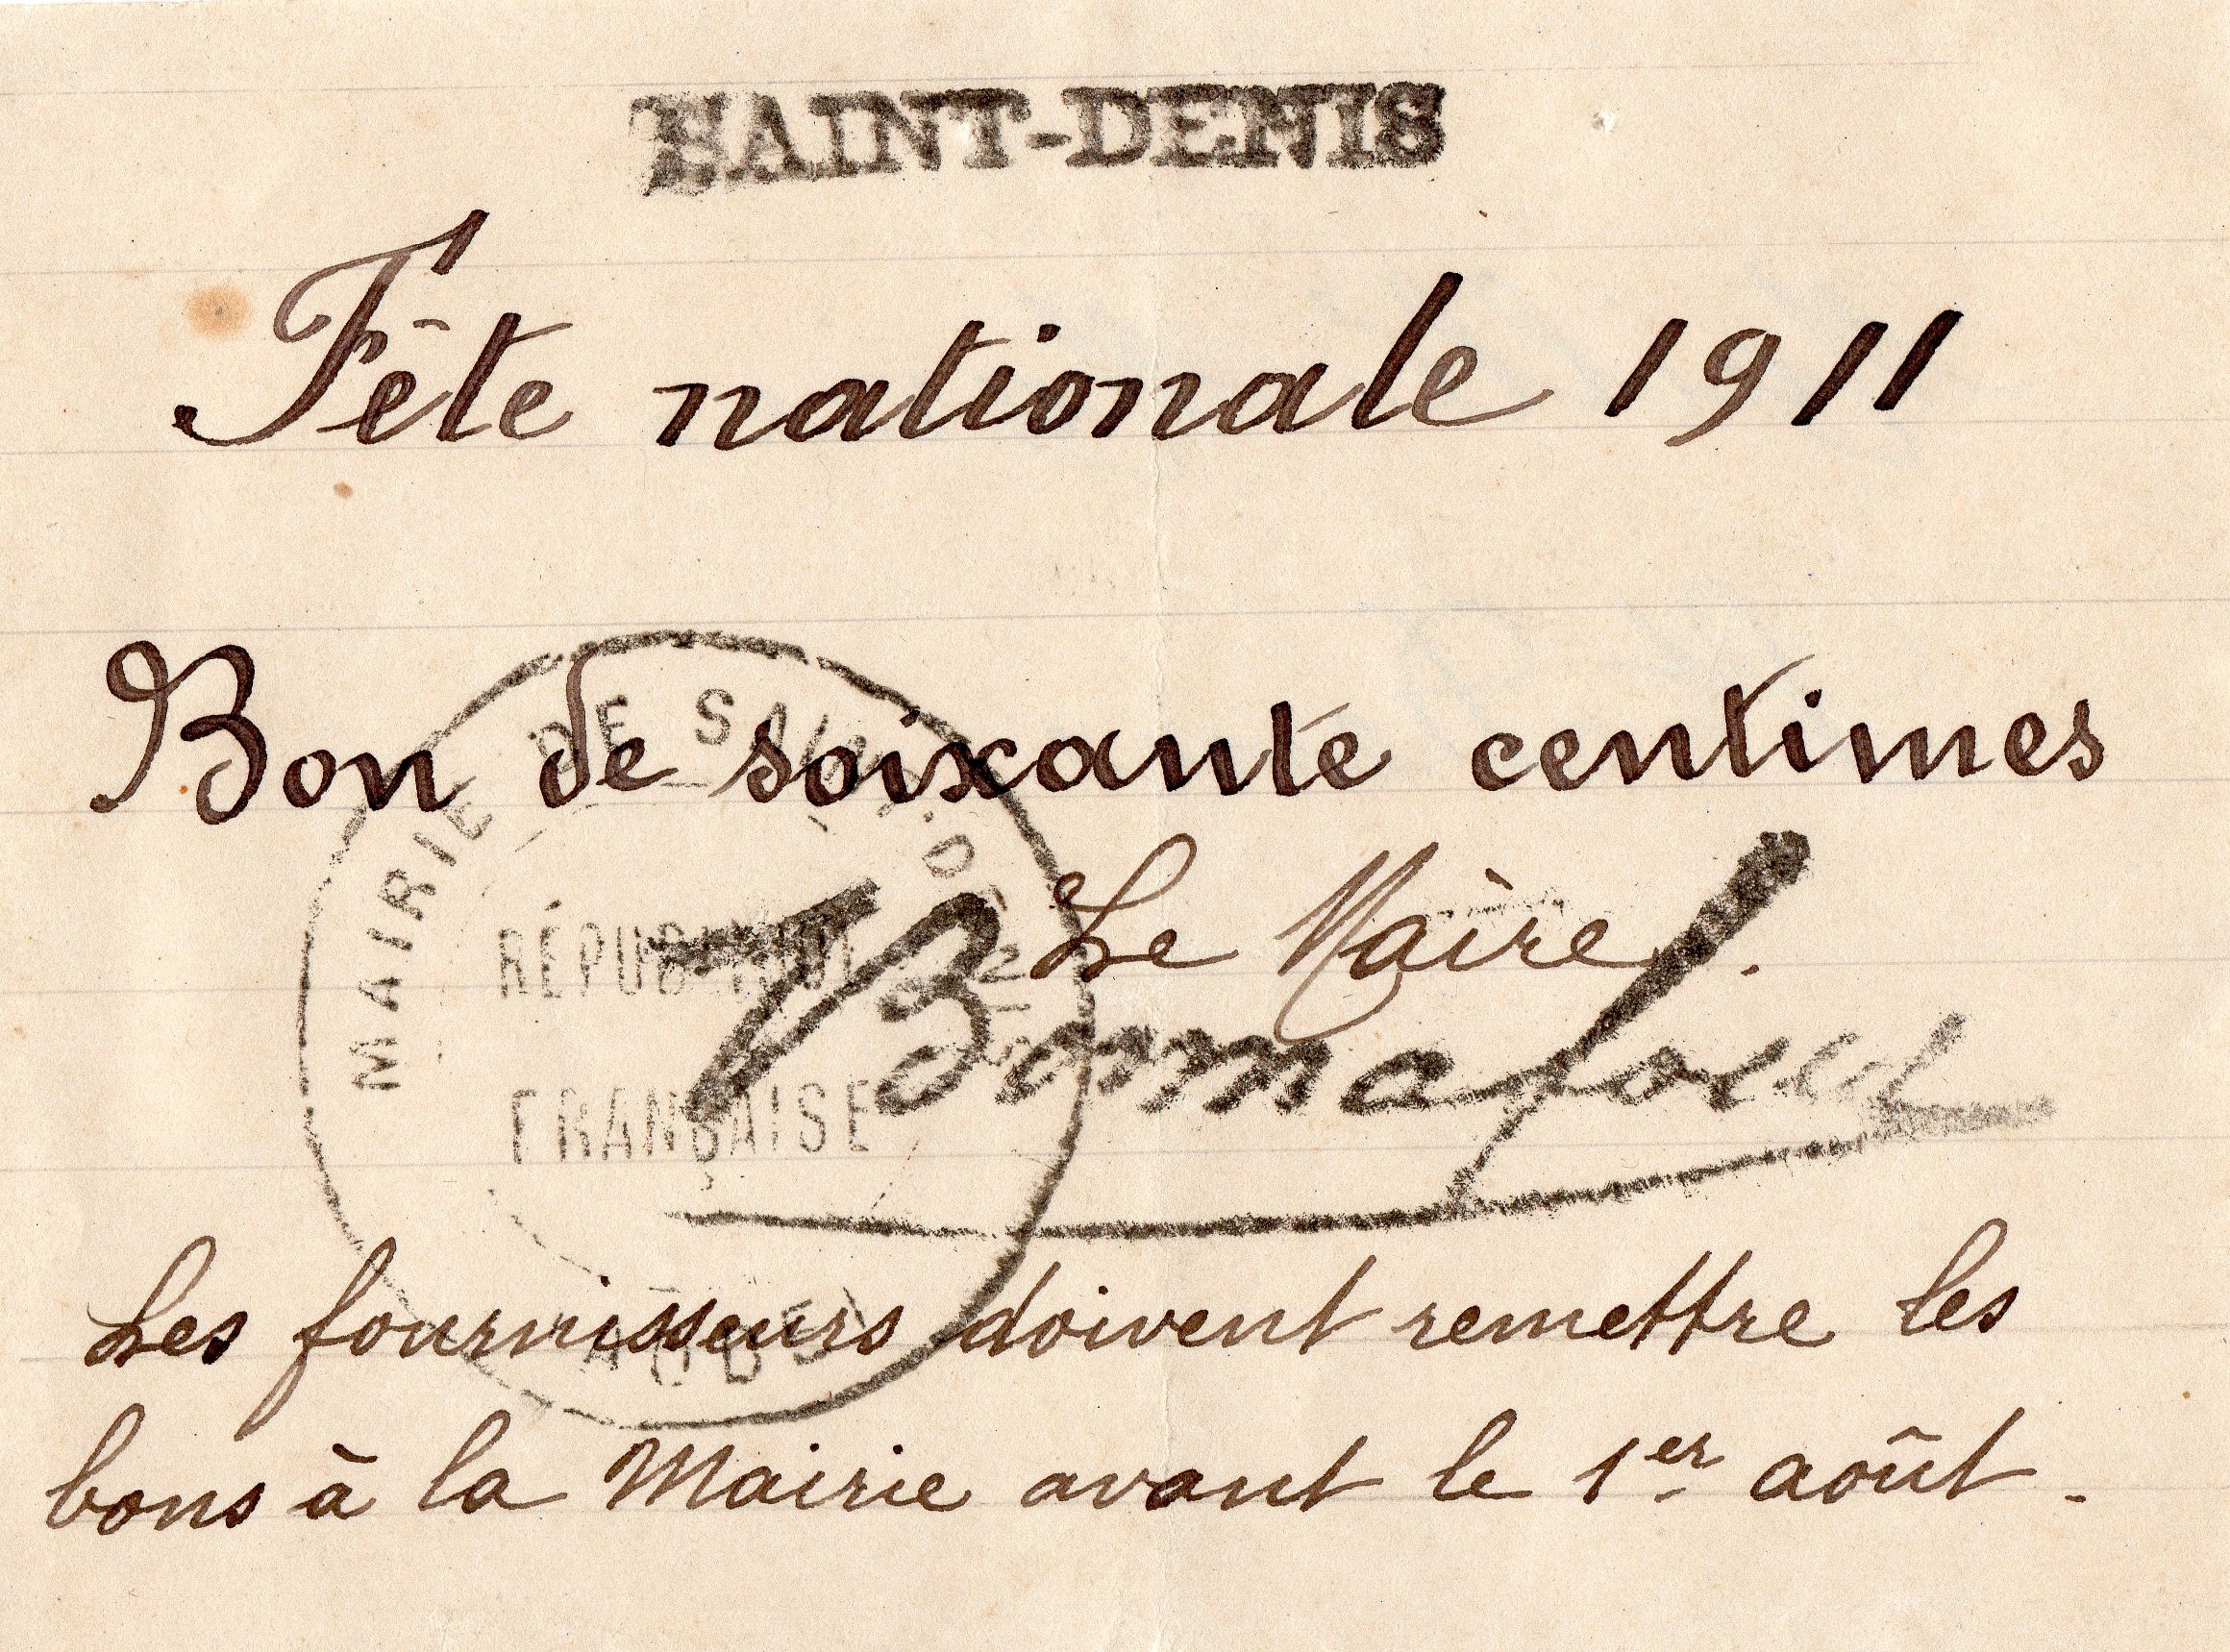 SAINT-DENIS
Fête nationale 1911
Bon de soixante centimes
Le Maire.
MAIRIE DE SAINT-DENIS
RÉPUBLIQUE
FRANÇAISE
AUDE
Les fournisseurs doivent remettre les
bons à la Mairie avant le 1er août.